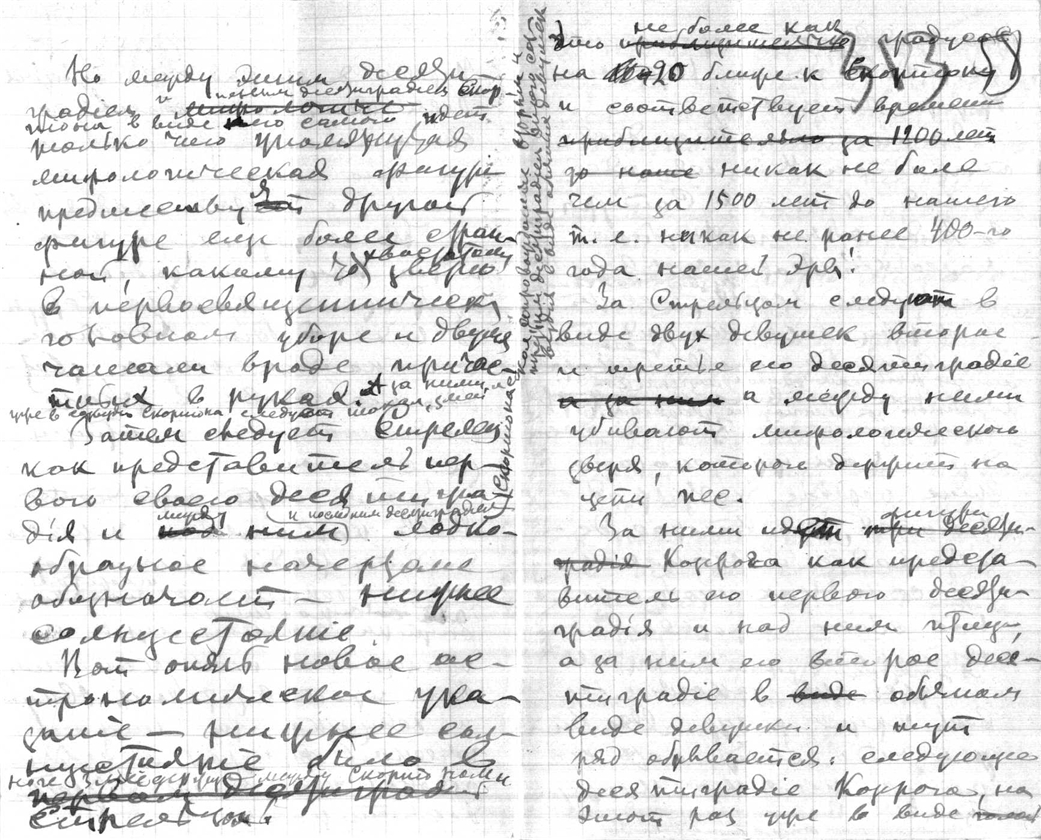 Но между этим десяти
градіем и последним десятиградіем Скор
пиона в виде его самого идет
только что упомянутая
мифологическая фигура
предшествуя другой
фигуре еще более стран-
ной, какому то хвостатому зверю
в первосвященническом
головном уборе и двумя
чашами вроде причас-
тных в руках. А за ними, уже
в созвездии Скорпиона следует
Затем следует Стрелец
как представитель пер-
вого своего десятигра-
дія и между ним и последним десятиградіем
Скорпиона лодко-
образное начертание
обозначает — зимнее
солнцестояніе.
Вот опять новое ас-
трономическое ука-
заніе — зимнее солн-
цестояніе было в
между Скорпионом и
Стрельцом.
это не более как градусов
на 20 ближе к Скорпиону
и соответствует времени
приблизительно за 1200 лет
до наше никак не более
чем за 1500 лет до нашего
т. е. никак не ранее 400-го
года нашей Эры!
За Стрельцом следуют в
виде двух девушек второе
и третье его десятиградіе
а за ним а между ними
убивают мифологического
зверя, которого держит на
цепи пес.
За ними идет фигура
три десяти-
градія Козерога как предста-
витель его первого десяти-
градія и над ним птица,
а за ним его второе деся-
тиградіе в виде обычном
виде девушки и тут
ряд обрывается: следующее
десятиградіе Козерога, на
этот раз уже в виде
313 58